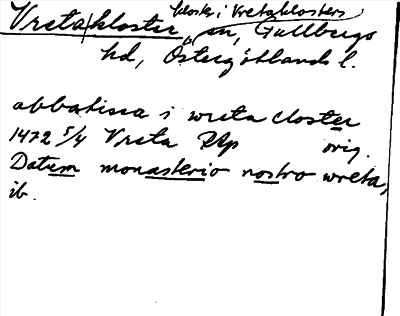 kloster i Vretaklosters
Vreta|kloster sn, Gullbergs
hd, Östergötlands l.
abbatissa i wreta closter
1472 5/4 Vreta RAp orig.
Datum monasterio nostro wreta,
ib.